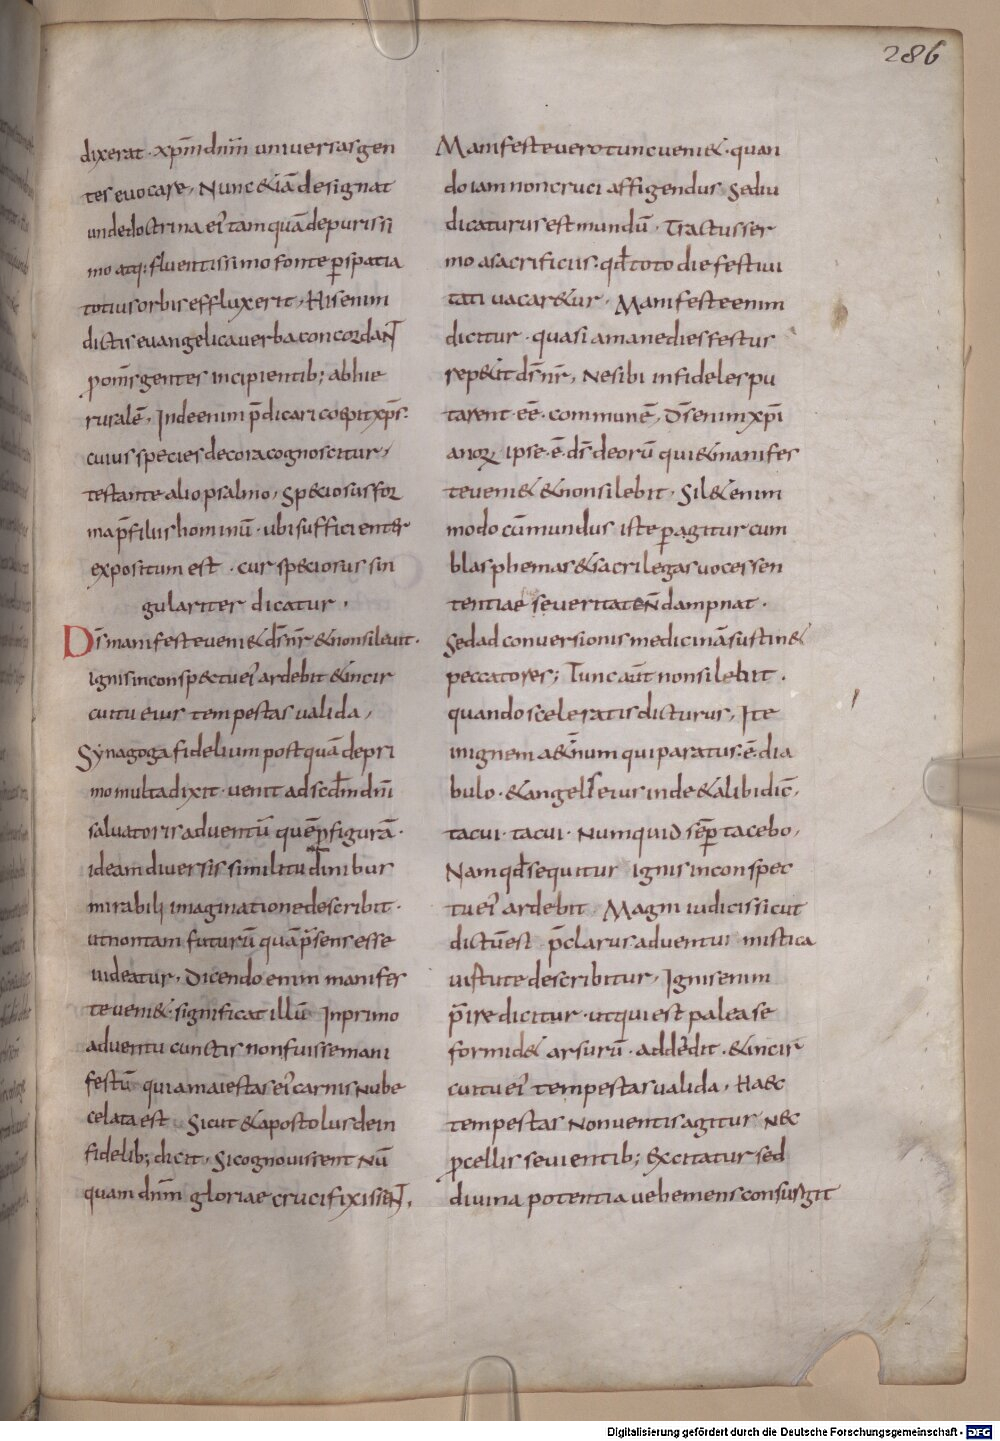 286
dixerat · xpm̄ dnm̄ universas gen
tes evocare, Nunc & iā designat
unde doctrina ei' tamquā de purissi
mo atq; fluentissimo fonte p̱ spatia
totius orbis effluxerit, His enim
dictis evangelica verba concordaNT
p̱ om̄s gentes incipientib; ab hie
rusalē, Inde enim p̄dicari coepit xp̄s·
cuius species decora cognoscitur,
testante alio psalmo, Speciosus for
ma p̄ filiis hominū · ubi sufficienter
expositum est · cur speciosus sin
gulariter dicatur,
Ds̄ manifeste veni& ds̄ nr̄ & non silevit ·
ignis in conspectu ei' ardebit & in cir
cuitu eius tempestas valida,
Synagoga fidelium postquā de pri
mo multa dixit · venit ad scd̄m dnī
salvatoris adventū quē p̱ figurā ·
ideam diversis similitudinibus
mirabili imaginatione describit ·
ut non tam futurū quā p̄sens esse
videatur, Dicendo enim manifes
te veni& · significat illū In primo
adventu cunctis non fuisse mani
festū quia maiestas ei' carnis nube
celata est Sicut & apostolus de in
fidelib; dicit, Si cognovissent nū
quam dnm̄ gloriae crucifixisseNT,
Manifeste vero tunc veni& · quan
do iam non cruci affigendus sed iu
dicaturus est mundū, Tractus ser
mo a sacrificiis · qd̄ toto die festivi
tati vacar&ur, Manifeste enim
dicitur · quasi a mane dies festus
rep&it ds̄ nr̄, Ne sibi infideles pu
tarent · eē · communē, Ds̄ enim xp̄i
anoꝝ ipse · ē · ds̄ deorū qui & manifes
te veni& & non silebit, Sil& enim
modo cū mundus iste p̱agitur cum
blasphemas & sacrilegas voces sen
tentiae severitate N̄ dampnat ·
Sed ad conversionis medicinā sustin&
peccatores; Tunc aūt non silebit ·
quando sceleratis dicturus, Ite
in ignem aet̄num qui paratus · ē · dia
bulo · & angelis eius inde & alibi dic̄,
tacui · tacui · Numquid sēp̱ tacebo,
Nam qd̄ sequitur ignis in conspec
tu ei' ardebit Magni iudicis sicut
dictū est p̄clarus adventui mistica
virtute describitur, Ignis enim
p̄ire dicitur · ut qui est palea se
formid& arsurū · addedit · & in cir
cuitu ei' tempestas valida, Haec
tempestas non ventis agitur nec
p̱cellis sevientib; excitatur sed
divina potentia vehemens consurgit
Digitalisierung gefördert durch die Deutsche Forschungsgemeinschaft - DFG